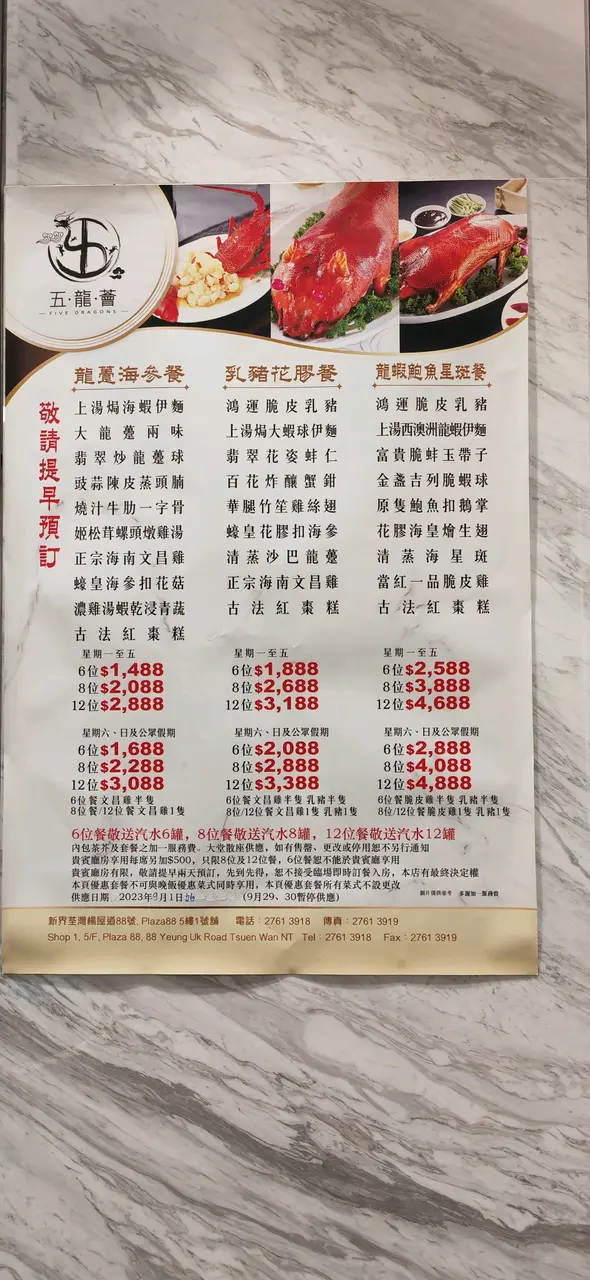 五·龍·薈
FIVE DRAGONS
敬請提早預訂
龍躉海參餐
上湯焗海蝦伊麵
大龍躉兩味
翡翠炒龍躉球
豉蒜陳皮蒸頭腩
燒汁牛肋一字骨
姬松茸螺頭燉雞湯
正宗海南文昌雞
蠔皇海參扣花菇
濃雞湯蝦乾浸青蔬
古法紅棗糕
星期一至五
6位$1,488
8位$2,088
12位$2,888
星期六、日及公眾假期
6位$1,688
8位$2,288
12位$3,088
6位餐文昌雞半隻
8位餐/12位餐文昌雞1隻
乳豬花膠餐
鴻運脆皮乳豬
上湯焗大蝦球伊麵
翡翠花姿蚌仁
百花炸釀蟹鉗
華腿竹笙雞絲翅
蠔皇花膠扣海參
清蒸沙巴龍躉
正宗海南文昌雞
古法紅棗糕
星期一至五
6位$1,888
8位$2,688
12位$3,188
星期六、日及公眾假期
6位$2,088
8位$2,888
12位$3,388
6位餐文昌雞半隻 乳豬半隻
8位/12位餐文昌雞1隻 乳豬1隻
龍蝦鮑魚星斑餐
鴻運脆皮乳豬
上湯西澳洲龍蝦伊麵
富貴脆蚌玉帶子
金盞吉列脆蝦球
原隻鮑魚扣鵝掌
花膠海皇燴生翅
清蒸海星斑
當紅一品脆皮雞
古法紅棗糕
星期一至五
6位$2,588
8位$3,888
12位$4,688
星期六、日及公眾假期
6位$2,888
8位$4,088
12位$4,888
6位餐脆皮雞半隻 乳豬半隻
8位/12位餐脆皮雞1隻 乳豬1隻
6位餐敬送汽水6罐，8位餐敬送汽水8罐，12位餐敬送汽水12罐
內包茶芥及套餐之加一服務費。大堂散座供應，如有售罄、更改或停用恕不另行通知
貴賓廳房享用每席另加$500，只限8位及12位餐，6位餐恕不能於貴賓廳享用
貴賓廳房有限，敬請提早兩天預訂，先到先得，恕不接受臨場即時訂餐入房，本店有最終決定權
本頁優惠套餐不可與晚飯優惠菜式同時享用，本頁優惠套餐所有菜式不設更改
供應日期 2023年9月1日 (9月29、30暫停供應)
圖片僅供參考 多謝加一服務費
新界荃灣楊屋道88號, Plaza88 5樓1號舖 電話：2761 3918 傳真：2761 3919
Shop 1, 5/F, Plaza 88, 88 Yeung Uk Road Tsuen Wan NT Tel：2761 3918 Fax：2761 3919